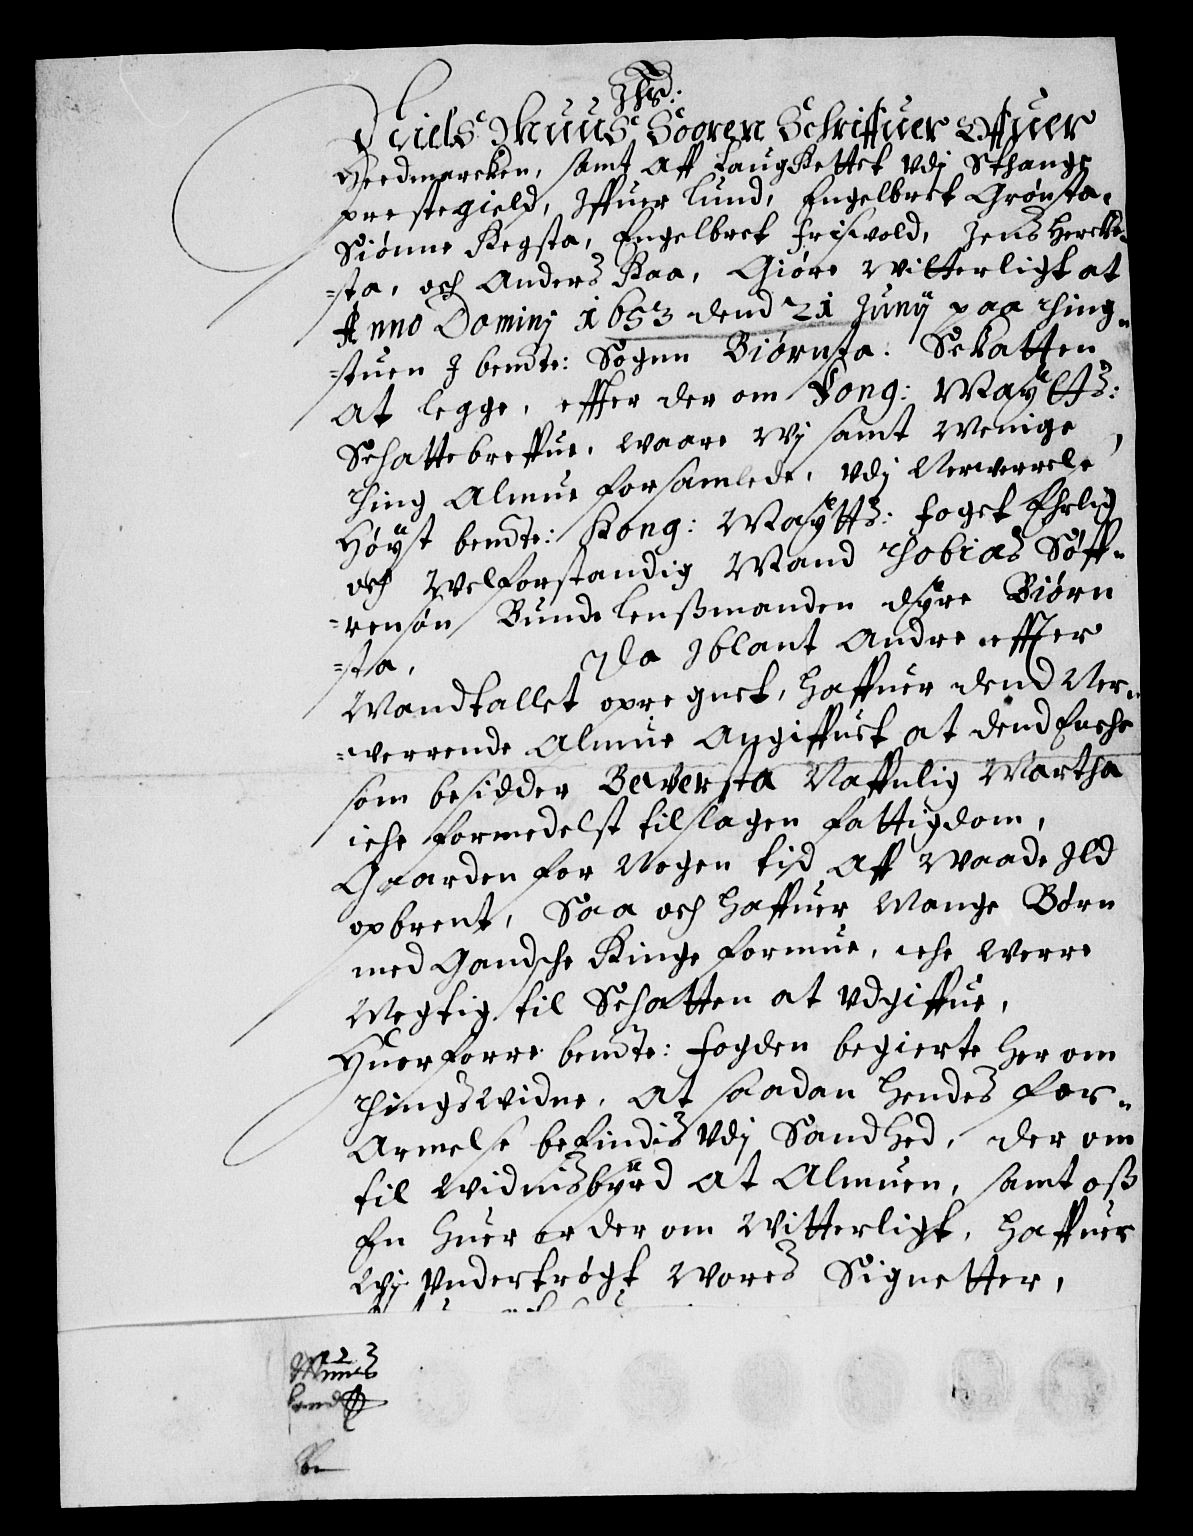 Jhs:
Niels Muus Sooren Schriffuer Offuer
Heedmarcken, samt aff LaugRettet vdj Sthange
prestegield, Iffuer Lund, Engelbret Grønsta,
Siønne Regsta, Engelbret Friswold, Jens Hercke-
=sta, och Anders Raa, Giøre Witterligt at
Anno Dominj 1653 dend 21 Junij paa Thing-
=stuen J bemte: Sognn Biørnsta. Schatten
at legge, effter der om Kong: Maÿtts:
Schattebreffue, waare Wj samt Menige
Thing Almue forsamlede, vdj Nerwerrelse
Høÿst bemte: Kong: Maÿtts: foget Ehrlig
och Welforstandig Mand Thobias Søff-
=rensøn Bunde lenßmanden Dÿre Biørn
=sta. Da Iblant Andre effter
Mandtallet opregnet, haffuer dend Ner-
=werrende Almue Angiffuet at dend Enche
som besidder Beversta Naffnlig Martha
iche formedelst tilslagen fattigdom,
Gaarden for Nogen tid aff Waade Ild
opbrent, Saa och haffuer Mange Børn
med Gandsche Ringe formue, iche Werre
Megtig til Schatten at vdgiffue,
Huorforre bemte: fogden begierte her om
Thingswidne, At saadan hendes for-
Armelse befindis vdj Sandhed, der om
til Widnisbyrd at Almuen, samt oß
En huer er der om Witterligt, haffuer
Wj Vndertrøgt Wores Signetter,